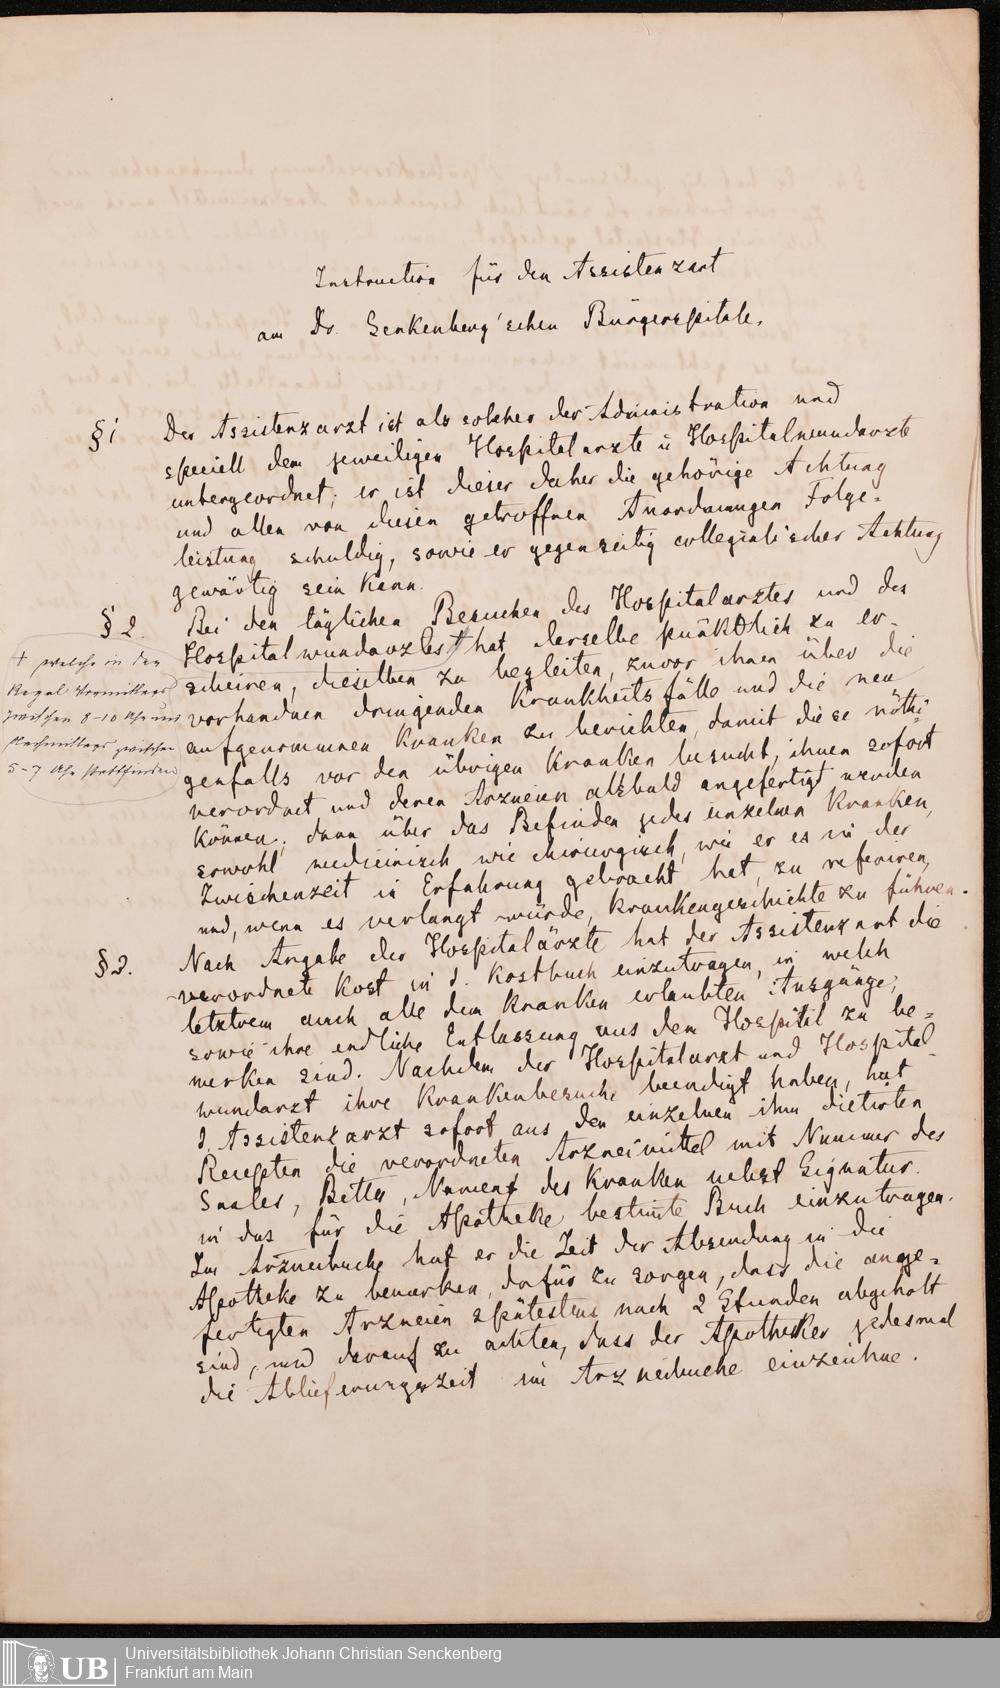 Instruction für den Assistenzart
am Dr. Senkenberg'schen Bürgerspitale.
§ 1 Der Assistenzarzt ist als solcher der Administration und
speciell dem jeweiligen Hospitalarzte u Hospitalwundarzte
untergeordnet; er ist dieser daher die gehörige Achtung
und allen von diesen getroffnen Anordnungen Folge=
leistung schuldig, sowie er gegenseitig collegiali'scher Achtung
gewärtig sein kann.
§ 2. Bei den täglichen Besuchen des Hospitalarztes und des
Hospitalwundarztes + hat derselbe pünktlich zu er-
scheinen, dieselben zu begleiten, zuvor ihnen über die
vorhandnen dringenden Krankheitsfälle und die neu
aufgenommenen Kranken zu berichten, damit diese nöthi=
genfalls vor den übrigen Kranken besucht, ihnen sofort
verordnet und deren Arzneien alsbald angefertigt werden
können; dann über das Befinden jedes einzelnen Kranken,
sowohl medicinisch wie chirurgisch, wie er es in der
Zwischenzeit in Erfahrung gebracht hat, zu referiren,
und, wenn es verlangt würde, Krankengeschichte zu führen.
+ welche in der
Regel Vormittags
zwischen 8-10 Uhr und
Nachmittags zwischen
5-7 Uhr stattfinden
§ 3. Nach Angabe der Hospitalärzte hat der Assistenzart die
verordnete Kost in d. Kostbuch einzutragen, in welch
letztrem auch alle dem Kranken erlaubten Ausgänge,
sowie ihre endliche Entlassung aus dem Hospital zu be=
merken sind. Nachdem der Hospitalarzt und Hospital-
wundarzt ihre Krankenbesuche beendigt haben, hat
d. Assistenzarzt sofort aus den einzelnen ihm dictirten
Recepten die verordneten Arzneimittel mit Nummer des
Saales, Bettes, Namen des Kranken nebst Signatur
in das für die Apotheke bestimte Buch einzutragen.
Im Arzneibuche hat er die Zeit der Absendung in die
Apotheke zu bemerken, dafür zu sorgen, dass die ange=
fertigten Arzneien spätestens nach 2 Stunden abgeholt
sind, und darauf zu achten, dass der Apotheker jedesmal
die Ablieferungszeit im Arzneibuche einzeichne.
UB Universitätsbibliothek Johann Christian Senckenberg
Frankfurt am Main